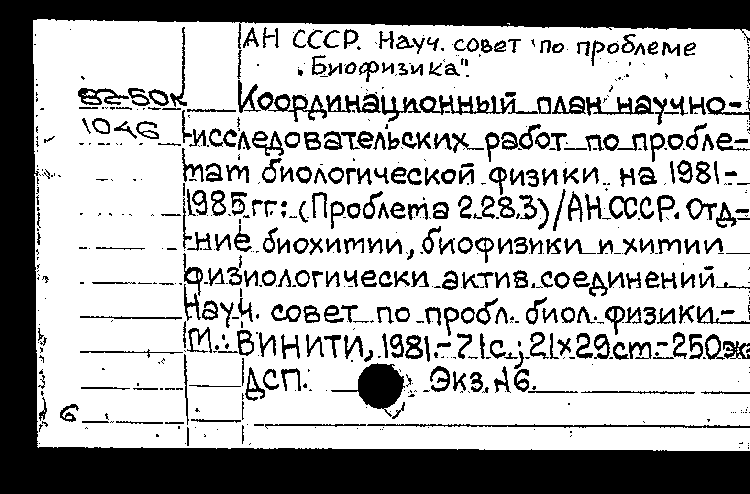 АН СССР. Науч. совет по проблеме
„Биофизика".
82-50К Координационный план научно-
1046 -исследовательских работ по пробле-
мам биологической физики на 1981-
1985 гг.: (Проблема 2.28.3) / АН СССР. Отд-
-ние биохимии, биофизики и химии
физиологически актив. соединений.
Науч. совет по пробл. биол. физики.-
М.: ВИНИТИ, 1981.- 71 с.; 21х29 см.- 250 экз
ДСП. Экз. №6.
6